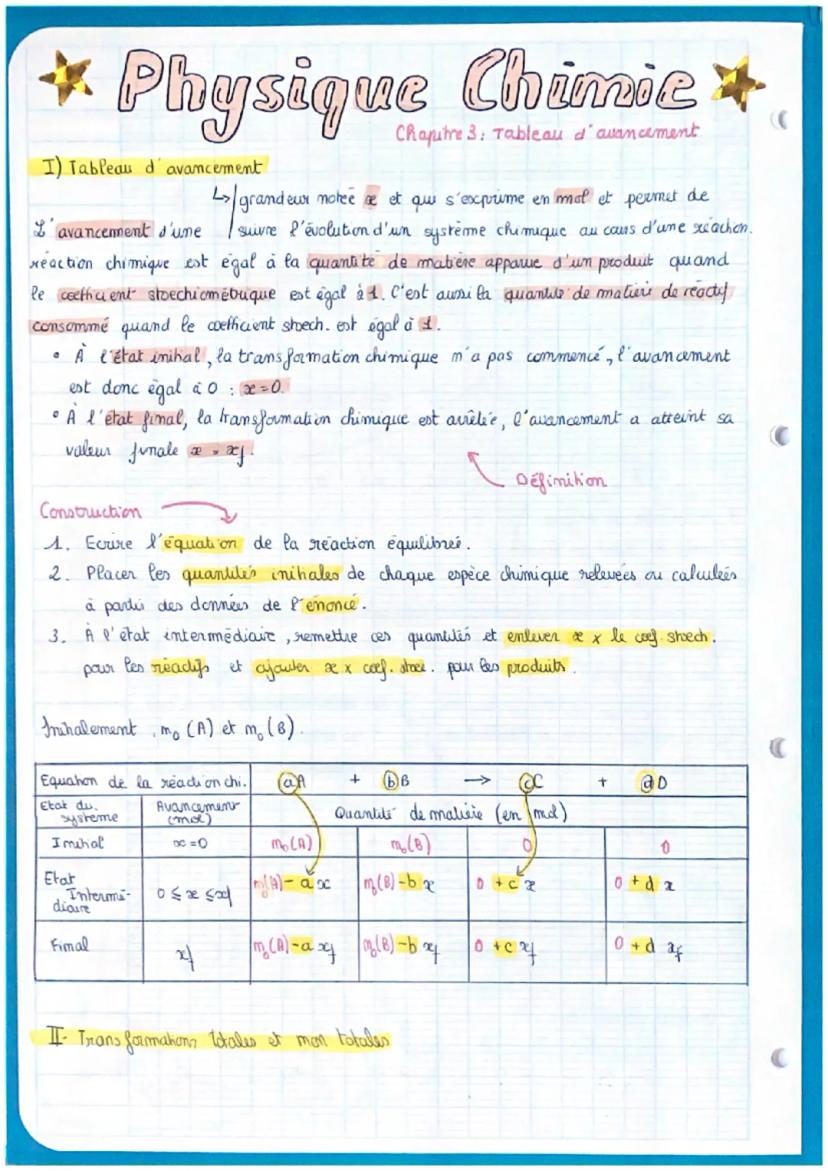 Physique Chimie
Chapitre 3: Tableau d'avancement
I) Tableau d'avancement
↳ grandeur notée x et qui s'exprime en mol et permet de
suivre l'évolution d'un système chimique au cours d'une réaction.
L'avancement d'une
réaction chimique est égal à la quantité de matière apparue d'un produit quand
le coefficient stoechiométrique est égal à 1. C'est aussi la quantité de matière de réactif
consommé quand le coefficient stoech. est égal à 1.
• À l'état initial, la transformation chimique n'a pas commencé, l'avancement
est donc égal à 0 : x = 0.
• À l'état final, la transformation chimique est arrêtée, l'avancement a atteint sa
valeur finale x = xf.
Définition
Construction
1. Ecrire l'équation de la réaction équilibrée.
2. Placer les quantités initiales de chaque espèce chimique relevées ou calculées
à partir des données de l'énoncé.
3. À l'état intermédiaire, remettre ces quantités et enlever x × le coef. stoech.
pour les réactifs et ajouter x × coef. stoe. pour les produits.
Initialement, n₀ (A) et n₀ (B).
Equation de la réaction chi. aA + bB → cC + dD
Etat du système Avancement (mol) Quantité de matière (en mol)
Initial x = 0 n₀(A) n₀(B) 0 0
Etat Intermé-diaire 0 ≤ x ≤ xf n₀(A) - a x n₀(B) - b x 0 + c x 0 + d x
Final xf n₀(A) - a xf n₀(B) - b xf 0 + c xf 0 + d xf
II- Transformations totales et non totales